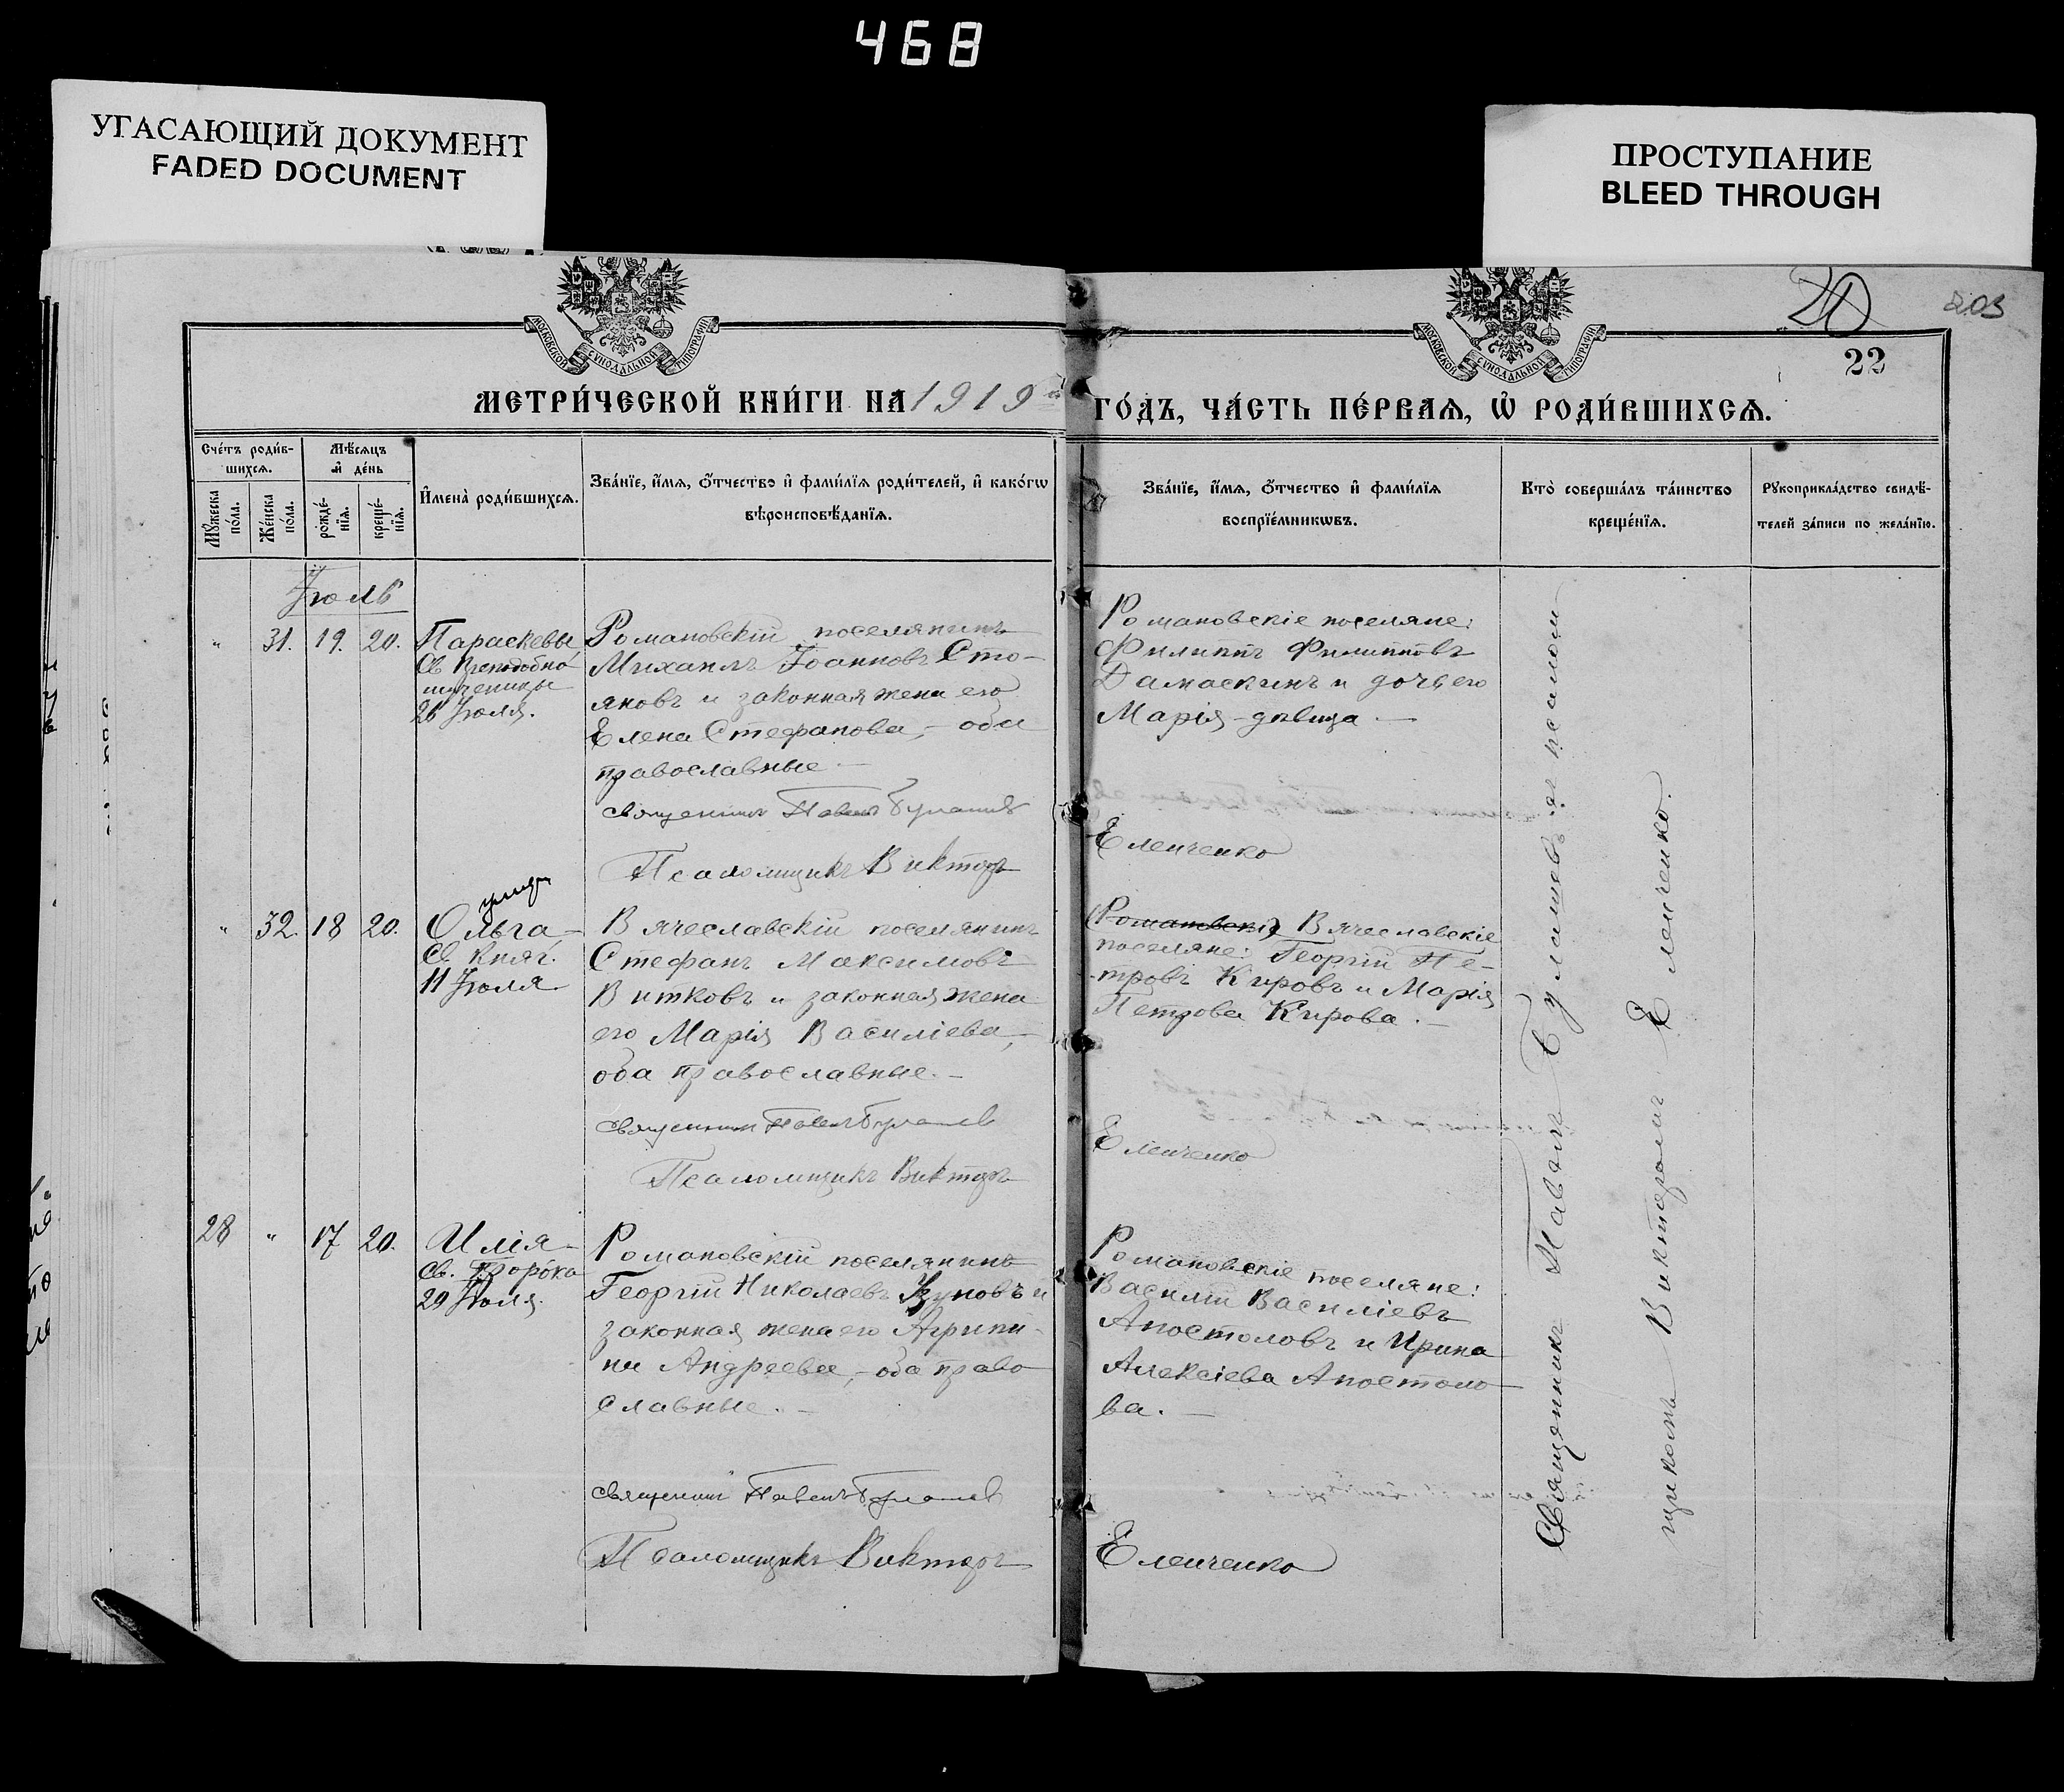 468
УГАСАЮЩИЙ ДОКУМЕНТ
FADED DOCUMENT
ПРОСТУПАНИЕ
BLEED THROUGH
20
203
22
МОСКОВСКОЙ СУНОДАЛЬНОЙ ТИПОГРАФІИ
МОСКОВСКОЙ СУНОДАЛЬНОЙ ТИПОГРАФІИ
МЕТРИ́ЧЕСКОЙ КНИ́ГИ НА 1919
ГО́ДЪ, ЧА́СТЬ ПЕ́РВАѦ, Ѡ҆ РОДИ́ВШИХСѦ.
Сче́тъ роди́в-
шихсѧ.
Мѣ́сѧцъ
и҆ де́нь
Мꙋ́жеска
по́ла.
Же́нска
по́ла.
рожде́-
нїѧ.
креще́-
нїѧ.
И҆мена̀ роди́вшихсѧ.
Зва́нїе, и҆́мѧ, ѻ҆́тчество и҆ фами́лїѧ роди́телей, и҆ како́гѡ
вѣроисповѣ́данїѧ.
Зва́нїе, и҆́мѧ, ѻ҆́тчество и҆ фами́лїѧ
воспрїе́мникѡвъ.
Кто̀ соверша́лъ та́инство
креще́нїѧ.
Рꙋкоприкла́дство свидѣ́-
телей за́писи по жела́нїю.
Іюль
" 31. 19. 20.
Параскевы
Св. Преподобно
мученицы
26 Іюля.
Романовскій поселянинъ
Михаилъ Іоанновъ Сто-
яновъ и законная жена его
Елена Стефанова, – оба
православные –
Священникъ Павелъ Булашевъ
Псаломщикъ Викторъ
Романовскіе поселяне:
Филиппъ Филипповъ
Дамаскинъ и дочь его
Марія – дѣвица –
Еленченко
" 32. 18 20.
Ольга –
Св. Княг.
11 Іюля
Вячеславскій поселянинъ
Стефанъ Максимовъ
Витковъ и законная жена
его Марія Василіева, –
оба православные. –
Священникъ Павелъ Булашев
Псаломщикъ Викторъ
(Романовскіе) Вячеславскіе
поселяне: Георгій Пе-
тровъ Кировъ и Марія
Петрова Кирова. –
Еленченко
28 " 17 20.
Илія –
Св. Пророка
20 Іюля.
Романовскій поселянинъ
Георгій Николаевъ Узуновъ и
законная жена его Агрипи-
на Андреева, – оба право
славные. –
Священникъ Павелъ Булашев
Псаломщикъ Викторъ
Романовскіе поселяне:
Василій Василіевъ
Апостоловъ и Ирина
Алексіева Апостоло
ва. –
Еленченко
Священникъ Павелъ Булашевъ съ псалом
щикомъ Викторомъ Еленченко.